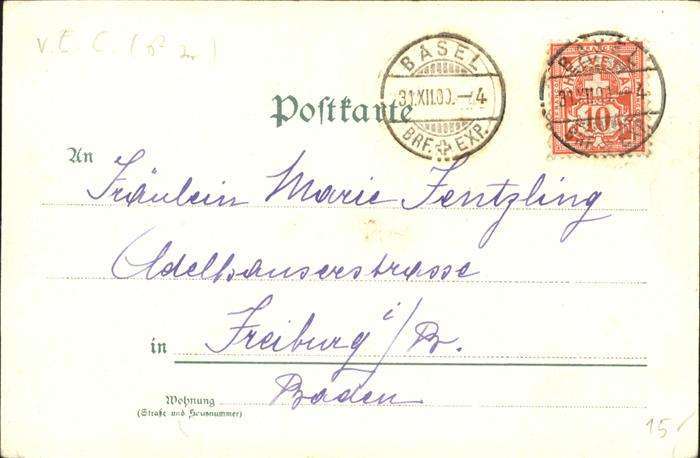 BASEL
31.XII.00.–4
BRF. EXP.
BASEL
HELVETIA
31.XII.00.–4
10
Postkarte
An
Fräulein Marie Fentzling
Adelhauserstrasse
in Freiburg i/B.
Baden
Wohnung
(Straße und Hausnummer)
15